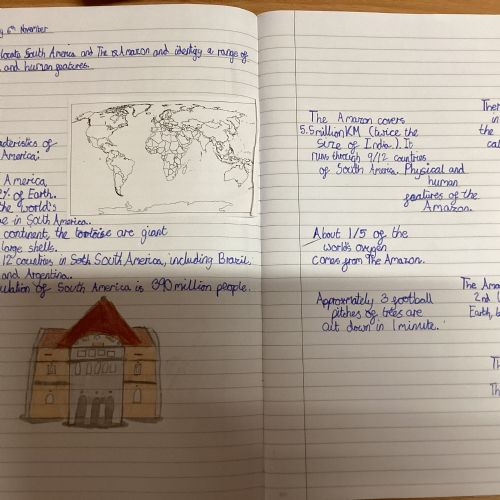 6th November
locate South America and The Amazon and identify a range of
and human features.
America:
America,
of Earth.
the world's
in South America.
continent, the tortoise are giant
large shells.
12 countries in South America, including Brazil
and Argentina.
of South America is 390 million people.
The Amazon covers
5.5million KM (twice the
size of India). It
runs through 9/12 countries
of South America.
Physical and
human
features of the
Amazon.
About 1/5 of the
world's oxygen
comes from The Amazon.
Approximately 3 football
pitches of trees are
cut down in 1 minute.
in
the
The
2nd
Earth,